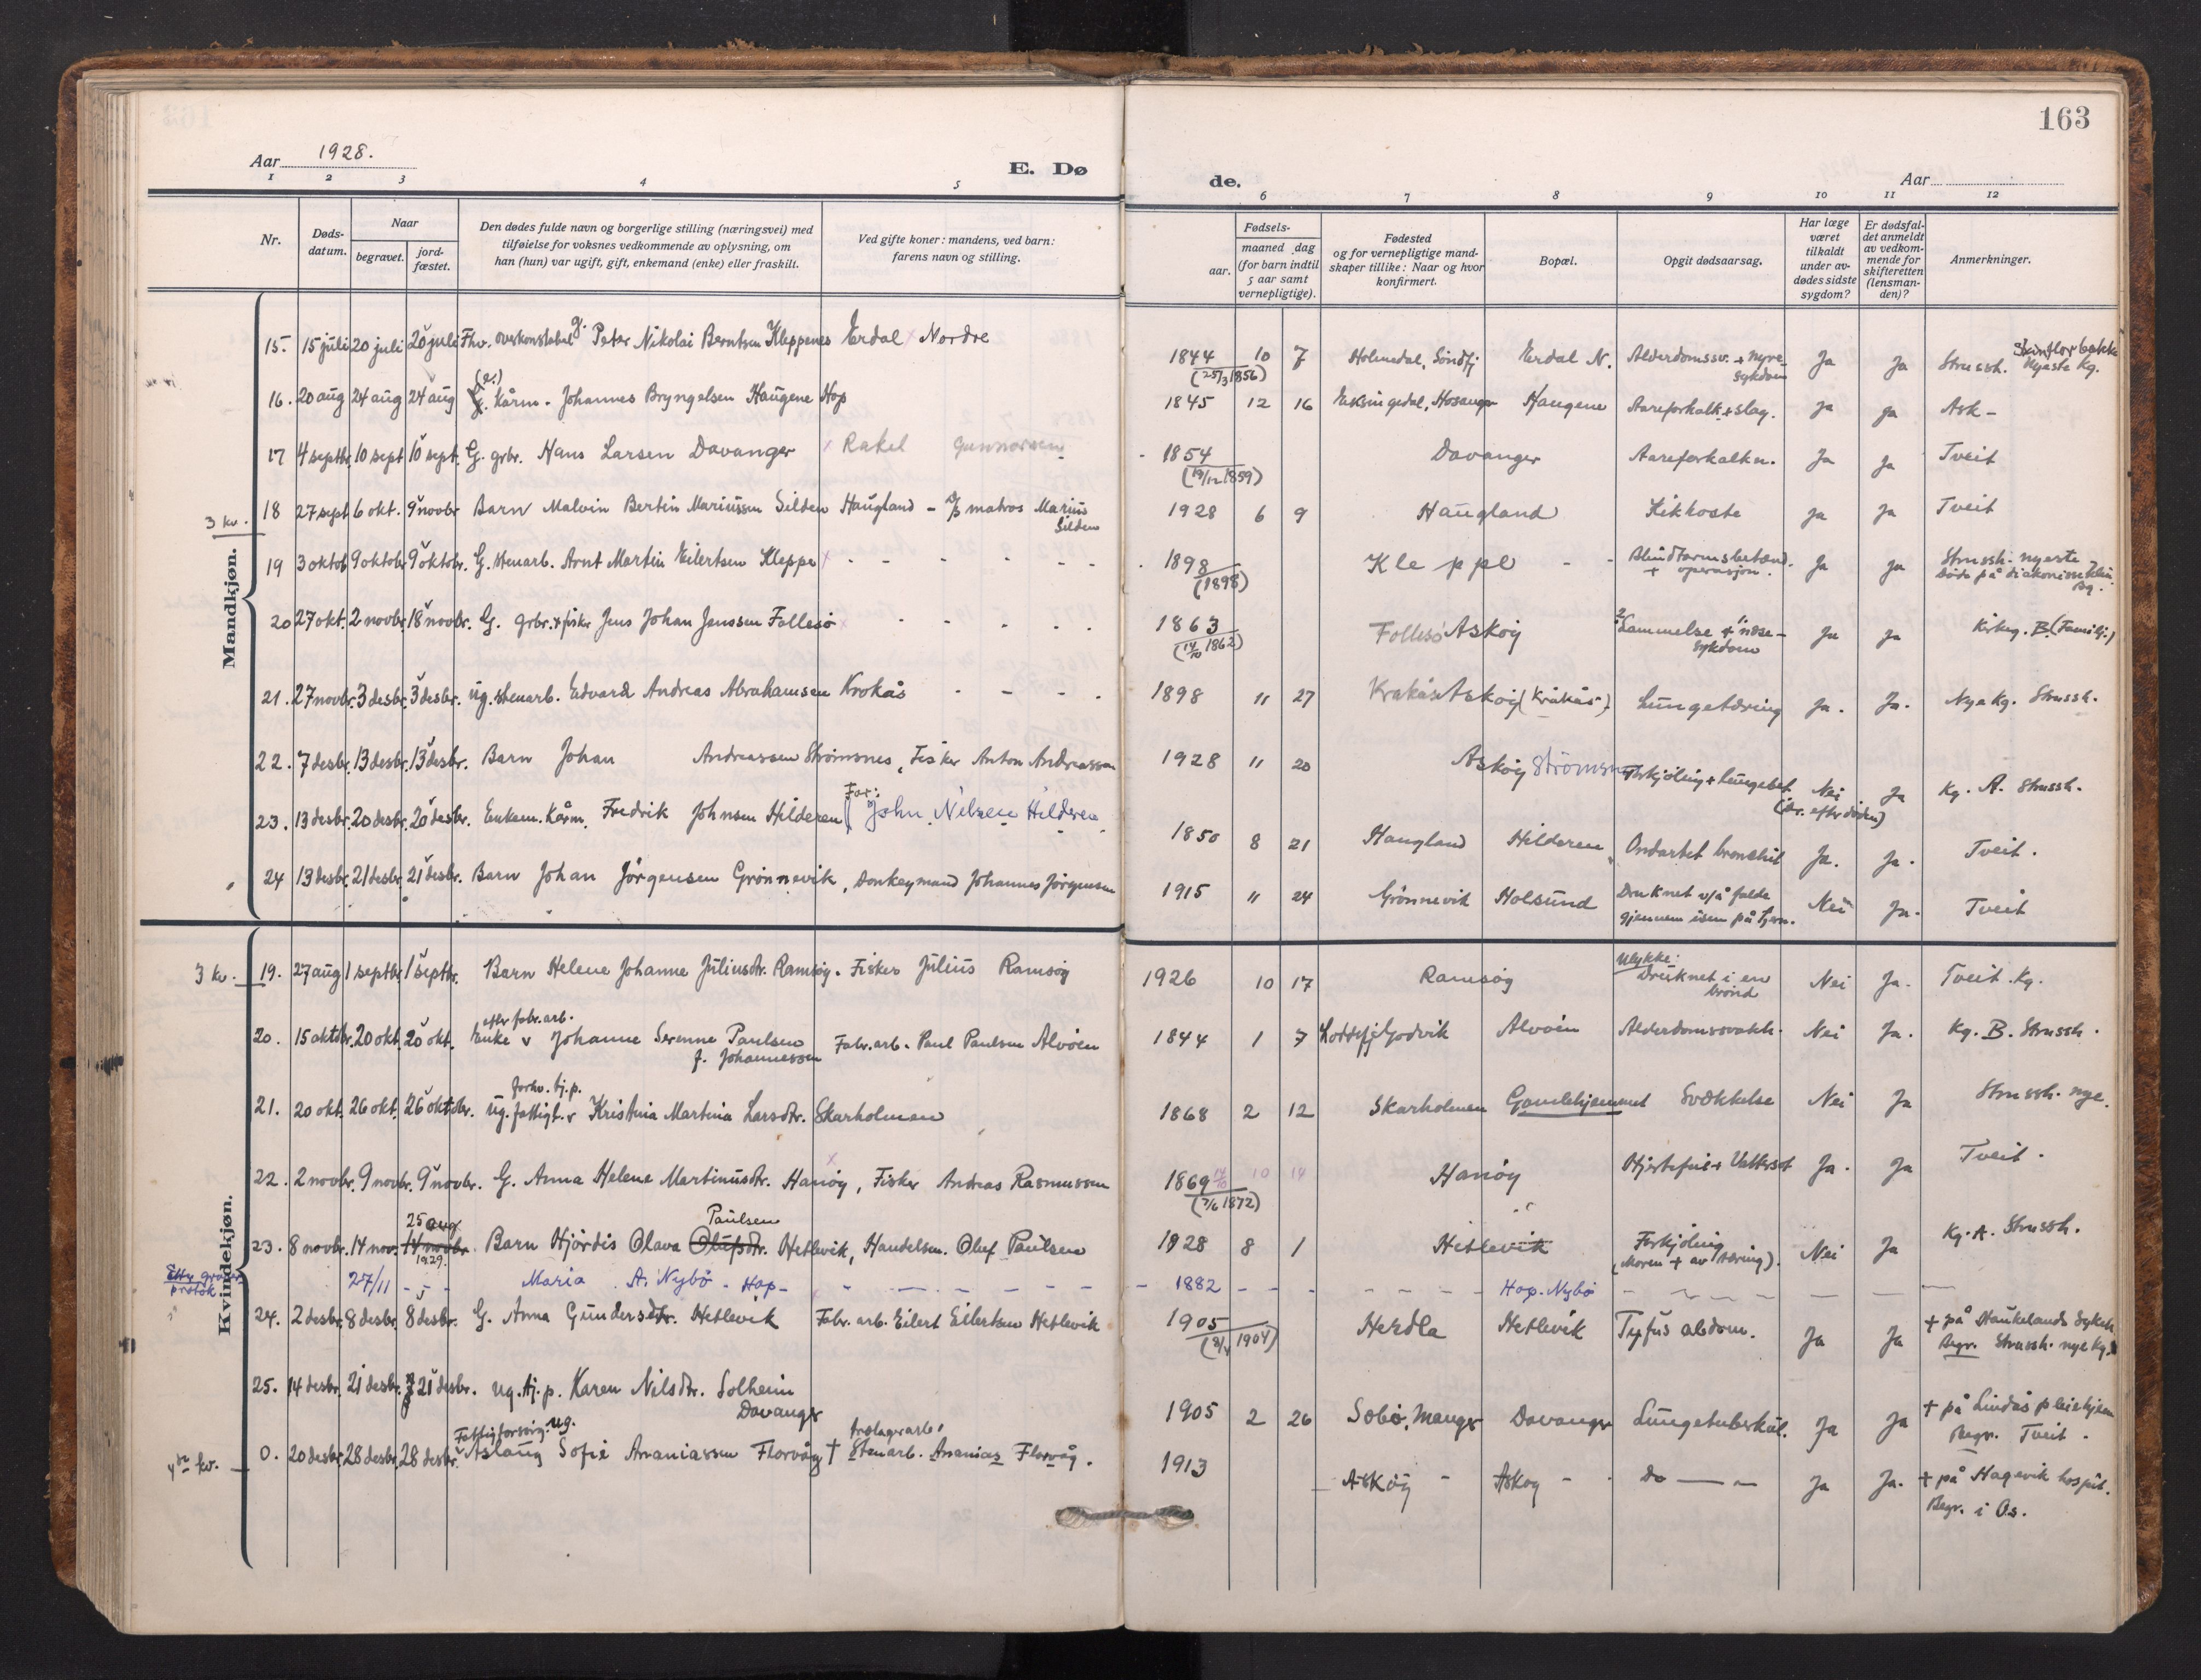 163
Aar 1928.
E. Dø de.
Aar
1 2 3 4 5 6 7 8 9 10 11 12
Nr.
Døds-datum.
Naar
begravet.
jord-fæstet.
Den dødes fulde navn og borgerlige stilling (næringsvei) med
tilføielse for voksnes vedkommende av oplysning, om
han (hun) var ugift, gift, enkemand (enke) eller fraskilt.
Ved gifte koner: mandens, ved barn:
farens navn og stilling.
Fødsels-
aar.
maaned dag
(for barn indtil
5 aar samt
vernepligtige).
Fødested
og for vernepligtige mand-
skaper tillike: Naar og hvor
konfirmert.
Bopæl.
Opgit dødsaarsag.
Har læge
været
tilkaldt
under av-
dødes sidste
sygdom?
Er dødsfal-
det anmeldt
av vedkom-
mende for
skifteretten
(lensman-
den)?
Anmerkninger.
Mandkjøn.
15. 15 juli 20 juli 20 juli Fhv. overkonstabel g. Peter Nikolai Berntsen Kleppenes Erdal Nordre 1844 (25/3 1856) 10 7 Holmedal, Søndfj Erdal N. Alderdomssv. + nyresykdom Ja Ja Strussh. Nyeste Kg.
16. 20 aug 24 aug 24 aug (e.) g. Kårm. Johannes Bryngelsen Haugene Hop 1845 12 16 Eksingedal, Hosanger Haugene Aareforkalk. + slag. Ja Ja Ask -
17 4 septbr. 10 sept 10 sept. G. grbr. Hans Larsen Davanger Rakel Gunnarsen 1854 (19/12 1859) Davanger Aareforkalkn. Ja Ja Tveit
3 kv. 18 27 sept 6 okt. 9 novbr Barn Malvin Bertin Mariussen Silden Haugland - D/S matros Marius Silden 1928 6 9 Haugland Kikhoste Ja Ja Tveit
19 3 oktob 9 oktobr 9 oktobr. G. stenarb. Arnt Martin Eilertsen Kleppe 1898 (1898) Kleppe Blindtarmsbetænd. + operasjon. Ja Ja Strussh. nyeste Døde på diakonissehjem Bg.
20 27 okt. 2 novbr. 18 novbr. G. grbr. + fisker Jens Johan Jenssen Follesø 1863 (14/10 1862) Follesø Askøy Lammelse + næse-sykdom Ja Ja Kirkeg. B. (Famili.)
21. 27 novbr. 3 desbr. 3 desbr. Ug. stenarb. Edvard Andreas Abrahamsen Krokås 1898 11 27 Krakås Askøy (Kråkås) Lungetæring Ja. Ja. Nye Kg. Strussh.
22. 7 desbr. 13 desbr. 13 desbr. Barn Johan Andreassen Strømsnes, Fisker Anton Andreassen 1928 11 20 Askøy Strømsn Forkjøling + lungebet. Nei (dr. efter døden) Ja Kg. A. Strussh.
23. 13 desbr. 20 desbr. 20 desbr. Enkem. Kårm. Fredrik Johnsen Hilderen Far: John Nilsen Hilderen 1850 8 21 Haugland Hilderen Ondartet bronchit Ja. Ja. Tveit.
24 13 desbr. 21 desbr. 21 desbr. Barn Johan Jørgensen Grønnevik, Donkeymand Johannes Jørgensen 1915 11 24 Grønnevik Holsund Druknet v/å falde gjennem isen på tjern. Nei Ja. Tveit
Kvindekjøn.
3 kv. 19. 27 aug 1 septbr. 1 septbr. Barn Helene Johanne Juliusdtr. Ramsøy. Fisker Julius Ramsøy 1926 10 17 Ramsøy Ulykke: Druknet i en brønd Nei Ja. Tveit. Kg.
20. 15 oktbr. 20 okt. 20 okt. Enke efter fabr. arb. Johanne Serenne Paulsen f. Johannessen Fabr. arb. Paul Paulsen Alvøen 1844 1 7 Godvik Alvøen Alderdomssvakh. Nei Ja. Kg. B. Strussh.
21. 20 okt. 26 okt. 26 oktbr. Ug. fattigl. forhv. tj. p. Kristina Martina Larsdtr. Skarholmen 1868 2 12 Skarholmen Gamlehjemmet Svækkelse Nei Ja Strussh. nye.
22. 2 novbr. 9 novbr. 9 novbr. G. Anna Helene Martinusdtr. Hanøy, Fisker Andreas Rasmussen 1869 10 14 (7/6 1872) Hanøy Hjertefeil + Vattersot Ja. Ja Tveit.
23. 8 novbr. 14 nov. 14 novbr. 25 aug. 1929. Barn Hjørdis Olava Olufsdtr. Paulsen Hetlevik, Handelsm. Oluf Paulsen 1928 8 1 Hetlevik Forkjøling (Moren + av tæring). Nei Ja Kg. A. Strussh.
Etter graver protok 27/11 Maria A. Nybø - Hop - 1882 Hop. Nybø
24. 2 desbr. 8 desbr. 8 desbr. G. Anna Gundersdtr. Hetlevik Fabr. arb. Eilert Eilertsen Hetlevik 1905 (1904) Herdla Hetlevik Tyfus abdom. Ja Ja + på Haukelands Sykeh. Begr. Strussh. nye Kg.
25. 14 desbr. 21 desbr. 21 desbr. Ug. tj. p. Karen Nilsdtr. Solheim Davanger 1905 2 26 Sæbø, Manger Davanger Lungetuberkul. Ja Ja + på Lindås pleiehjem Begr. Tveit.
4de kv. 0. 20 desbr. 28 desbr. 28 desbr. Fattigforsørg. ug. Aslaug Sofie Ananiassen Florvåg + Stenarb. Ananias Florvåg. 1913 Askøy Askøy Do Ja Ja. + på Hagevik hospit. Begr. i Os.